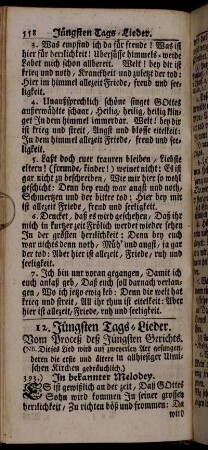 558 Jüngsten Tags-Lieder.
3. Was empfind ich da für freude! Was ist
hier für herrlichkeit! Uberflüsse himmels-weide
Labet mich schon allbereit. Welt! bey dir ist
krieg und noth, Kranckheit und zuletzt der tod:
Hier im himmel allezeit Friede, freud und see-
ligkeit.
4. Unaußsprechlich schöne singet GOttes
außerwählte schaar, Heilig, heilig, heilig klin-
get In dem himmel immerdar. Welt! bey dir
ist krieg und streit, Angst und blosse eitelkeit:
In dem himmel allezeit Friede, freud und see-
ligkeit.
5. Laßt doch euer trauren bleiben, Liebste
eltern! (freunde, kinder!) weinet nicht: Es ist
gar nicht zu beschreiben, Wie mir hier so wohl
geschicht: Denn bey euch war angst und noth,
Schmertzen und der bitter tod: Hier bey mir
ist allezeit Friede, freud und seeligkeit.
6. Dencket, daß es wird geschehen, Daß ihr
mich in kurtzer zeit Frölich werdet wieder sehen
In der grösten herrlichkeit: Denn bey euch
war nichts denn noth, Müh' und angst, ja gar
der tod: Aber hier ist allezeit, Friede, ruh und
seeligkeit.
7. Ich bin nur voran gegangen, Damit ich
euch anfaß geb, Daß euch soll darnach verlan-
gen, Wo ich jetzo ewig leb: Denn die welt hat
krieg und streit, All ihr thun ist eitelkeit: Aber
hier ist allezeit, Friede, ruh und seeligkeit.
12. Jüngsten Tags-Lieder.
Vom Proceß deß Jüngsten Gerichts.
(NB. Dieses Lied wird auf zweyerley Art gesungen,
deren die erste und ältere in allhiesiger Ulmi-
schen Kirchen gebräuchlich.)
393. In bekannter Melodey.
ES ist gewißlich an der zeit, Daß GOttes
Sohn wird kommen In seiner grossen
herrlichkeit, Zu richten böß und frommen: Da
wird